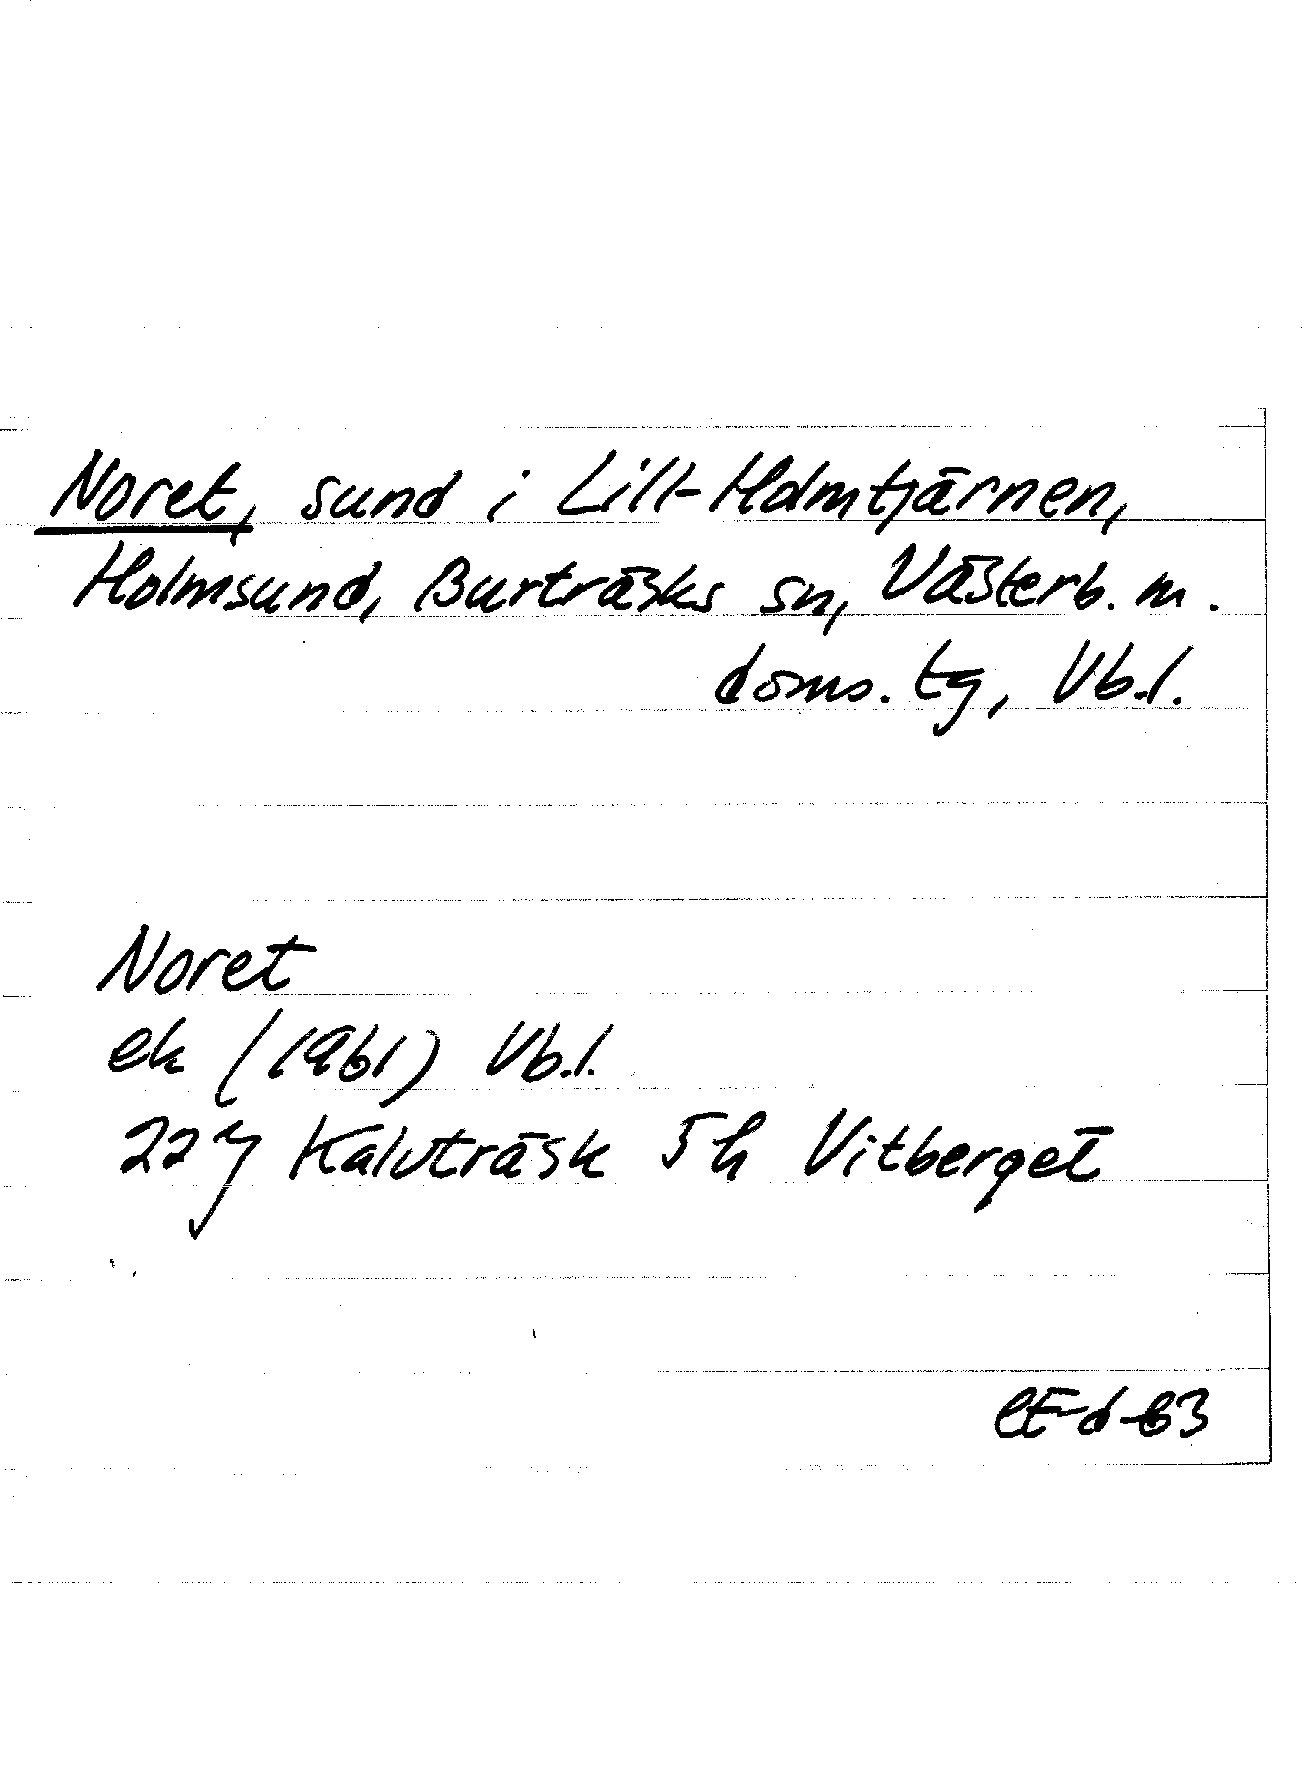 Noret, sund i Lill-Holmtjärnen,
Holmsund, Burträsks sn, Västerb. m.
doms. tg, Vb.l.
Noret
ek (1961) Vb.l.
22J Kalvträsk 5h Vitberget